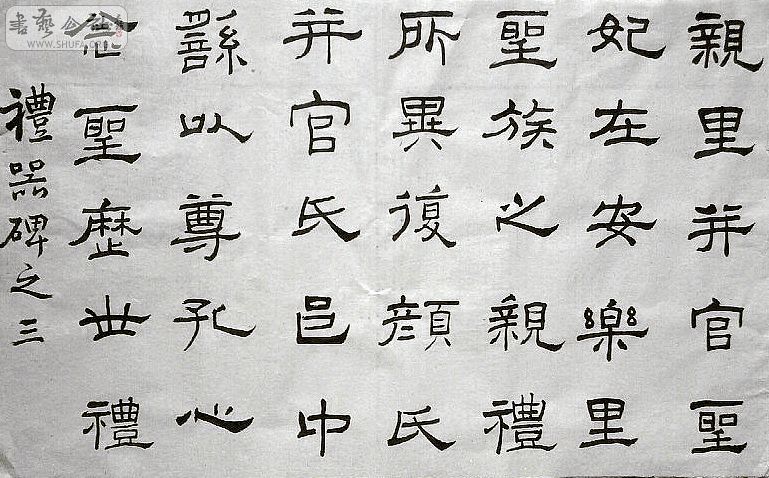 親里并官聖
妃在安樂里
聖族之親禮
所異復顏氏
并官氏邑中
繇以尊孔心
念聖歷世禮
禮器碑之三
書藝公社
WWW.SHUFA.ORG